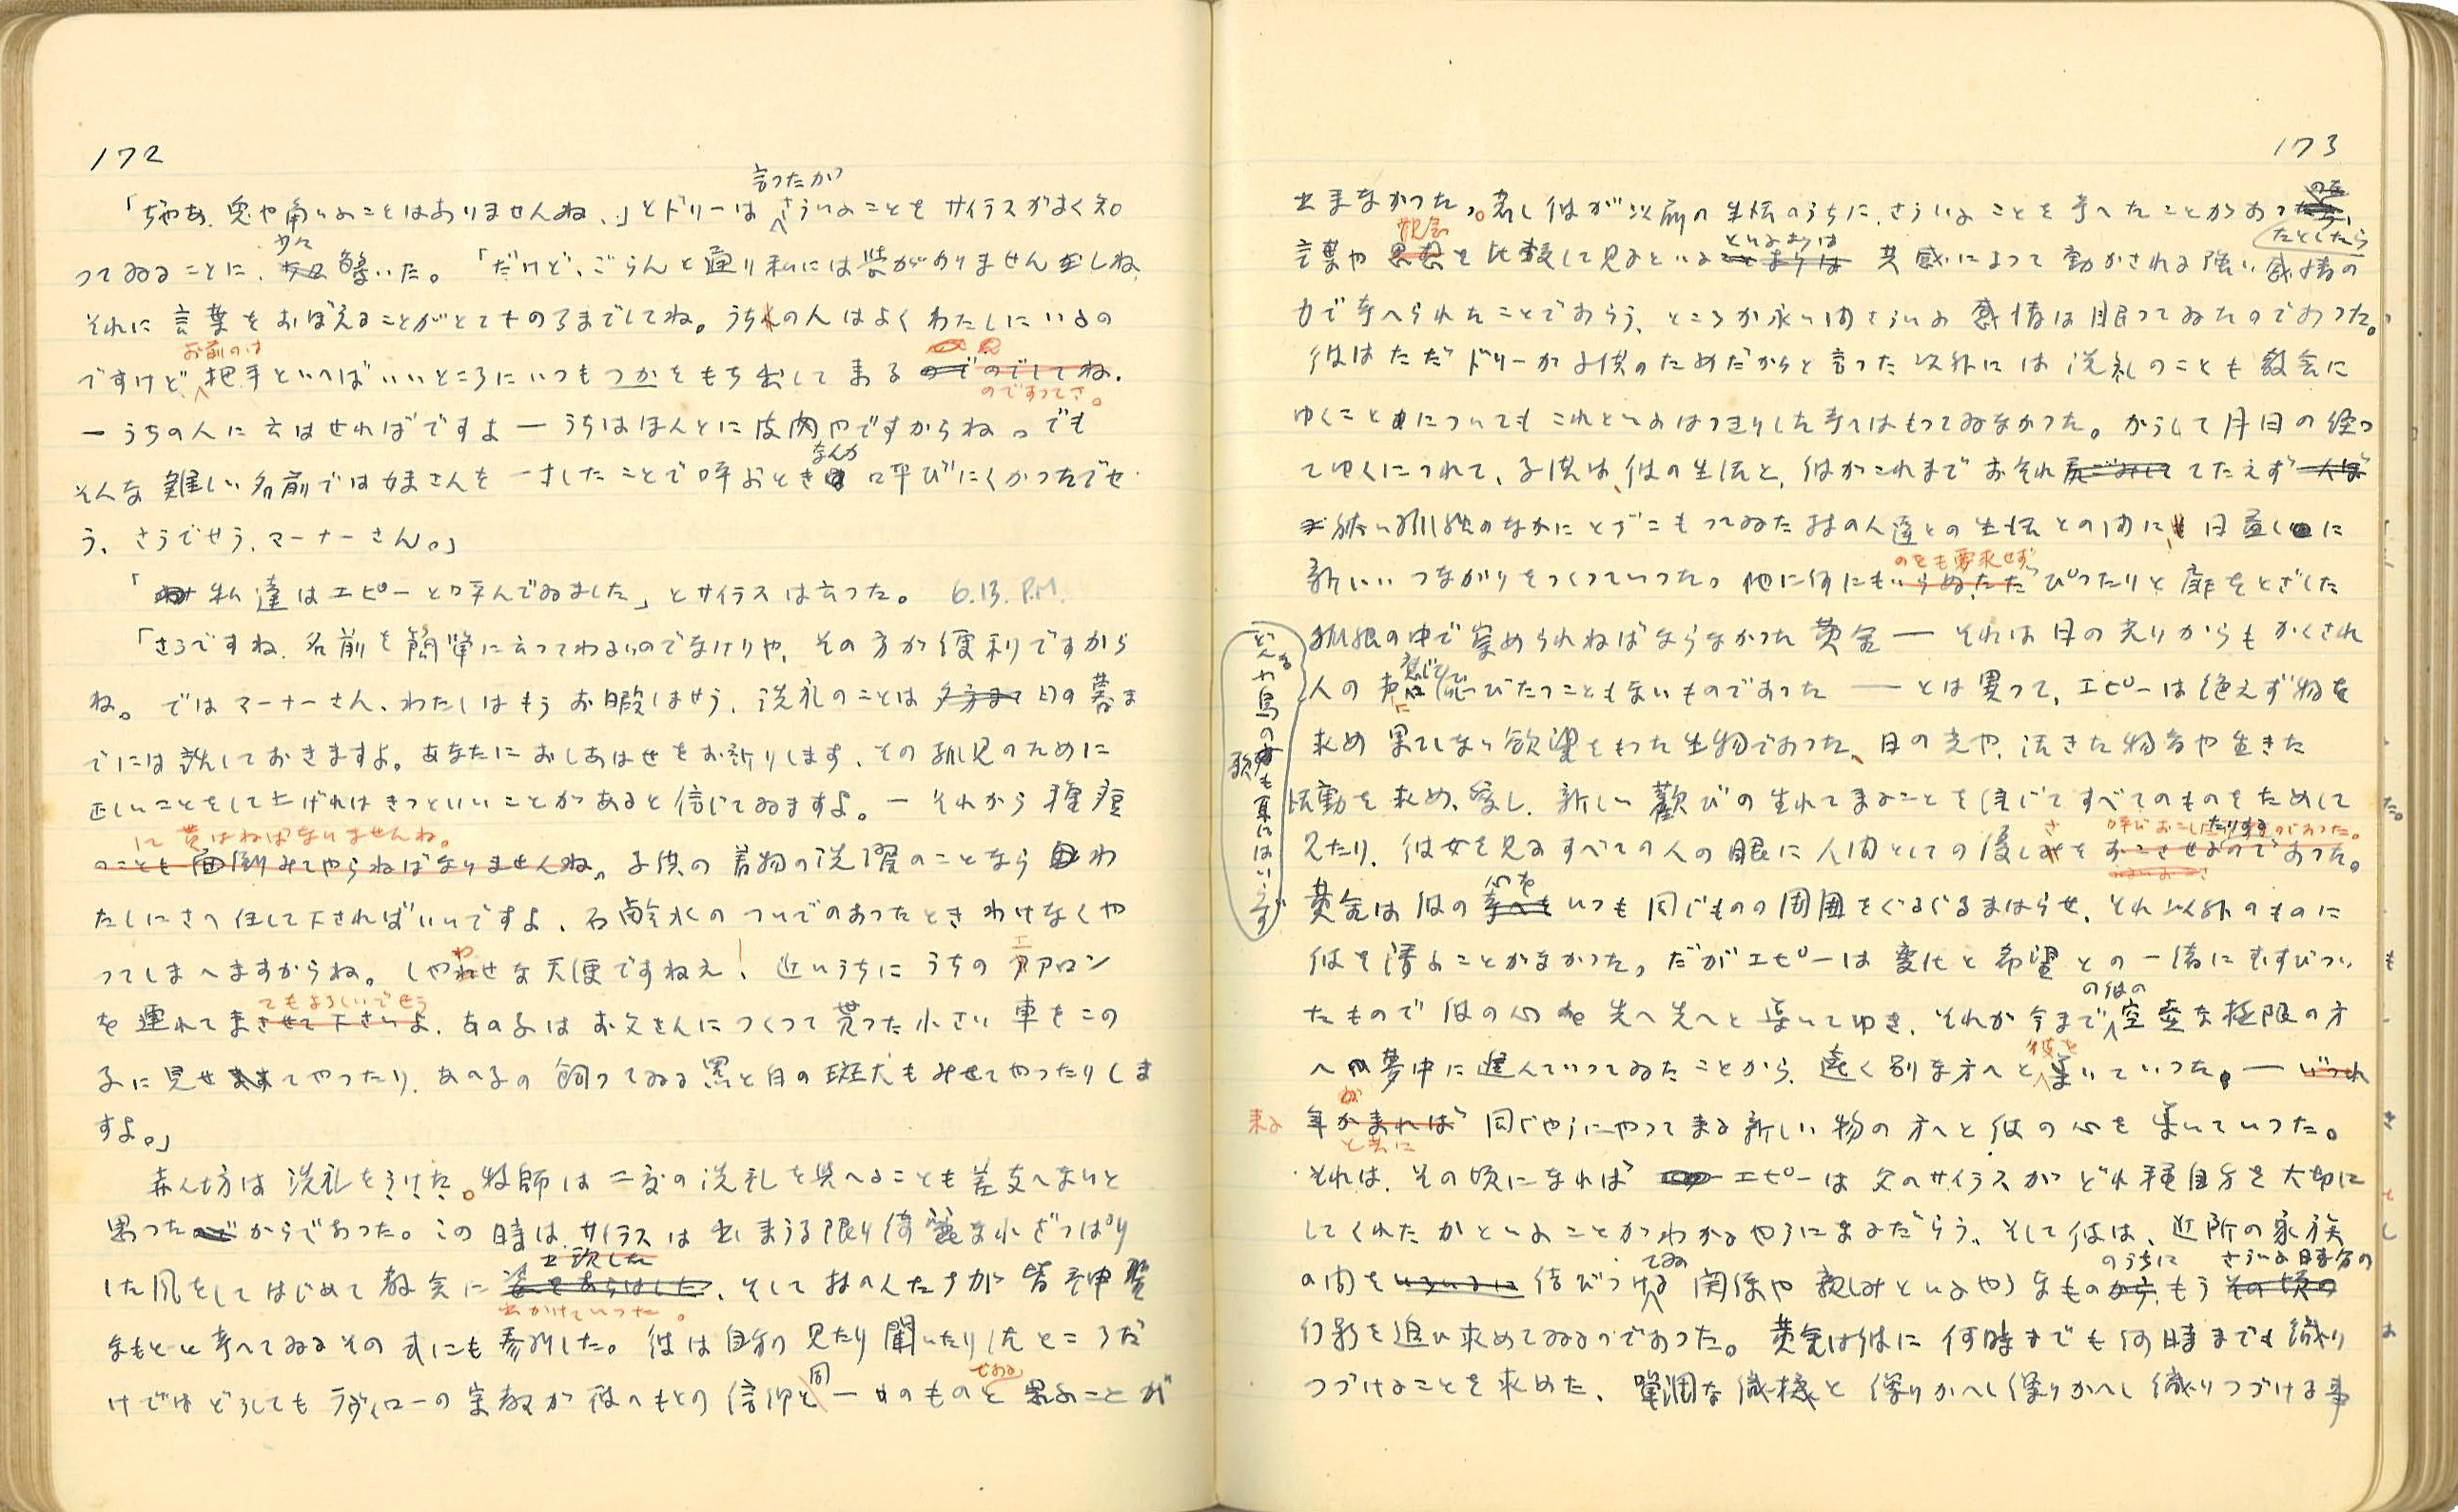 172
言つたが
「ぢやあ、兎や角いふことはありませんね、」とドリーは さういふことを サイラスがよく知
少々
つてゐることに、驚いた。「だけど、ごらんと通り私には学がありませんしね、
それに 言葉を おぼえることがとてものろまでしてね。うちの人はよく わたしにいふの
お前のは
ですけど、把手といへば いいところに いつもつかをもち出して来る のでのでしてね.
のですつてさ。
ー うちの人に云はせればですよ ー うちはほんとに皮肉やですからね。でも
なんか
そんな 難しい名前では妹さんを 一寸したことで呼ぶとき 呼びにくかつたでせ
う、さうでせう、マーナーさん。」
「私達はエピーと呼んでゐました」とサイラスは云つた。 6.13. P.M.
「さうですね、名前を簡単に云つてわるいのでなけりや、その方が便利ですから
ね。では マーナーさん、わたしはもう お暇しませう、洗礼のことは 夕方まで 日の暮ま
でには話しておきますよ。あなたにおしあはせをお祈りします、その孤児のために
正しいことをして上げればきつといいことがあると信じてゐますよ。ー それから 種痘
に 貰はねばなりませんね。
のことも 面倒みてやらねばなりませんね。子供の 着物の洗濯のことなら わ
たしにさへ任して下さればいいですよ、石鹸水の ついでのあつたとき わけなくや
つてしまへますからね。しやわせな天使ですねえ! 近いうちに うちの エアロン
てもよろしいでせう
を 連れて来させて下さいよ、あの子は お父さんに つくつて貰つた小さい 車をこの
子に見せてやつたり、あの子の 飼つてゐる黒と白の斑犬もみせてやつたりしま
すよ。」
赤ん坊は 洗礼をうけた。牧師は 二度の洗礼を与へることも差支へないと
思つたからであつた。この 時は、サイラスは 出来うる限り綺麗な小ざつぱり
出頭した
した風をしてはじめて 教会に 姿をあらはした、そして村の人たちが 皆神聖
出かけていつた。
なもと考へてゐるその 式にも 参列した。彼は自分の 見たり聞いたりしたところだ
同 である
けではどうしても ラヴィローの宗教が 彼のもとの 信仰と一のものと思ふことが
173
出来なかつた。若し彼が以前の生活のうちに、さういふ ことを考へたことがあつ
観念 といふよりは たとしたら
言葉や 思想を比較して見るといふことよりは 共感によつて 動かされる強い感情の
力で考へられたことであらう、ところが永い間さういふ 感情は眠つてゐたのであつた。
彼はただ ドリーが子供のためだからと言つた以外には 洗礼のことも教会に
ゆくことについても これといふはつきりした考へはもつてゐなかつた。かうして月日の経つ
てゆくにつれて、子供は、彼の生活と、彼がこれまで おそれ てたえず
狭い孤独のなかに とぢこもつてゐた村の人達との生活 との間に 日ましに
のをも要求せず
新しいつながりをつくつていつた。他に何にもいらぬただ ぴつたりと 扉をとざした
孤独の中で崇められねばならなかつた黄金 ー それは日の光りからも かくされ
応じて
人の声に飛びたつことも ないものであつた ー とは異つて、エピーは絶えず物を
どんな鳥の歌も耳にはいらず
求め 果てしない欲望をもつた生物であつた、日の光や、活きた物音や生きた
活動を求め、愛し、新しい歓びの生れて来ることを信じて すべてのものをためして
さ 呼びおこしたりするのであつた。
見たり、彼女を見る すべての人の眼に 人間としての優しみを おこさせるのであつた。
心を
黄金は彼の 考へを いつも同じものの周囲をぐるぐるまはらせ、それ以外のものに
彼を誘ふことがなかつた。だがエピーは変化と希望 との一緒に むすびつい
の彼の
たもので 彼の心を 先へ先へと 導いてゆき、それが今まで 空虚な極限の方
彼を
へ 夢中に進んでいつてゐたことから、遠く別な方へと導いていつた。ー いづれ
来る が
年が来れば 同じやうにやつて来る新しい物の方へと彼の心を 導いていつた。
と共に
それは、その頃になれば エピーは 父のサイラスがどれ程自分を大切に
してくれたかといふことがわかるやうになるだらう、そして彼は、近所の家族
てゐる のうちに さういふ時分の
の間をいろいろに 結びつける 関係や 親しみといふやうなものから、もう その頃の
幻影を追ひ求めてゐるのであつた。黄金は彼に 何時までも何時までも織り
つづけることを求めた、単調な織機と 繰りかへし繰りかへし織りつづける事